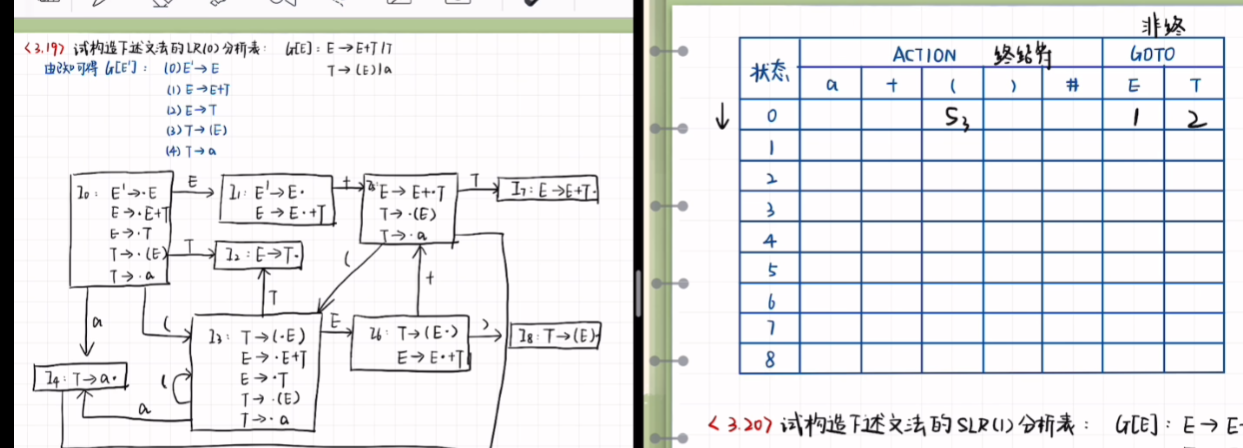 <3.19> 试构造下述文法的LR(0)分析表: G[E]: E→E+T|T
T→(E)|a
由已知可得 G[E']: (0) E'→E
(1) E→E+T
(2) E→T
(3) T→(E)
(4) T→a
I0: E'→·E
E→·E+T
E→·T
T→·(E)
T→·a
E
I1: E'→E·
E→E·+T
+
E→E+·T
T→·(E)
T→·a
T
I7: E→E+T·
T
I2: E→T·
(
+
T
a
(
I3: T→(·E)
E→·E+T
E→·T
T→·(E)
T→·a
E
I6: T→(E·)
E→E·+T
)
I8: T→(E)·
I4: T→a·
(
a
非终
状态 ACTION 终结符 GOTO
a + ( ) # E T
↓ 0 S3 1 2
1
2
3
4
5
6
7
8
<3.20> 试构造下述文法的SLR(1)分析表: G[E]: E→E